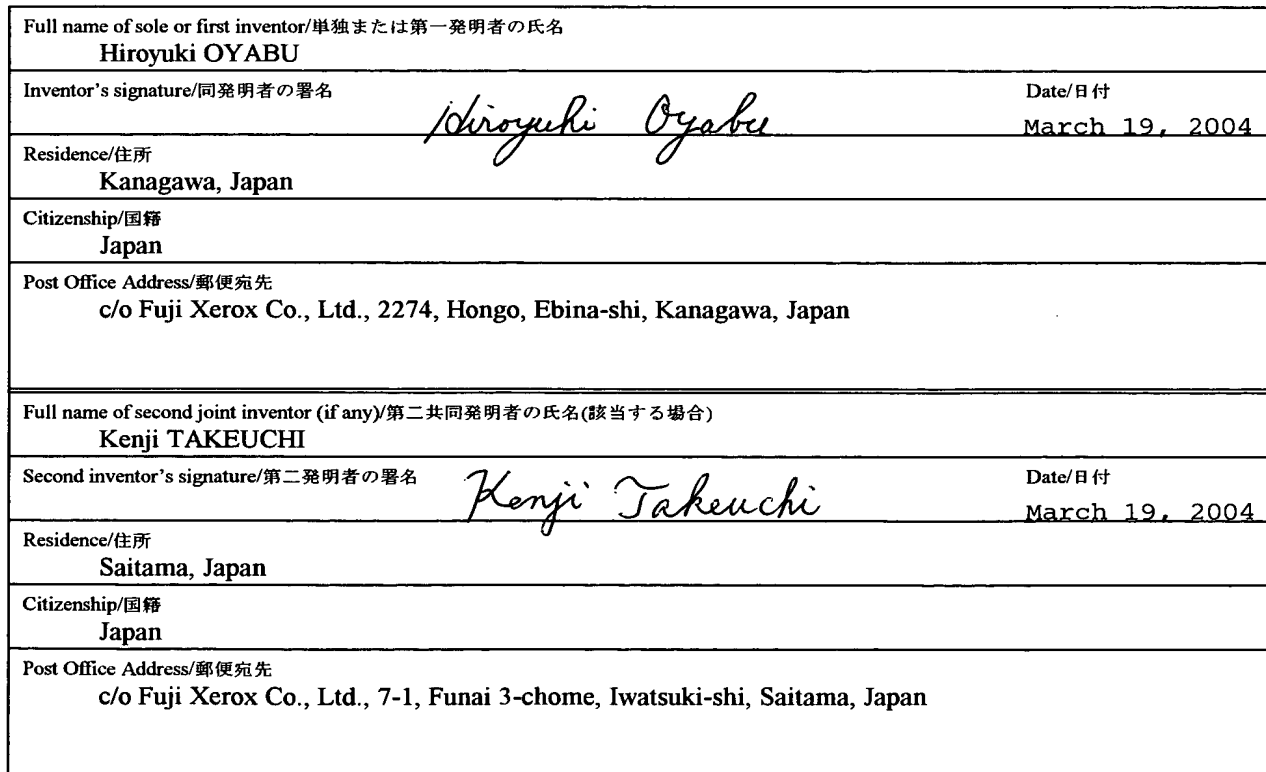 Full name of sole or first inventor/単独または第一発明者の氏名
Hiroyuki OYABU
Inventor's signature/同発明者の署名 Date/日付
Hiroyuki Oyabu March 19, 2004
Residence/住所
Kanagawa, Japan
Citizenship/国籍
Japan
Post Office Address/郵便宛先
c/o Fuji Xerox Co., Ltd., 2274, Hongo, Ebina-shi, Kanagawa, Japan
Full name of second joint inventor (if any)/第二共同発明者の氏名(該当する場合)
Kenji TAKEUCHI
Second inventor's signature/第二発明者の署名 Date/日付
Kenji Takeuchi March 19, 2004
Residence/住所
Saitama, Japan
Citizenship/国籍
Japan
Post Office Address/郵便宛先
c/o Fuji Xerox Co., Ltd., 7-1, Funai 3-chome, Iwatsuki-shi, Saitama, Japan